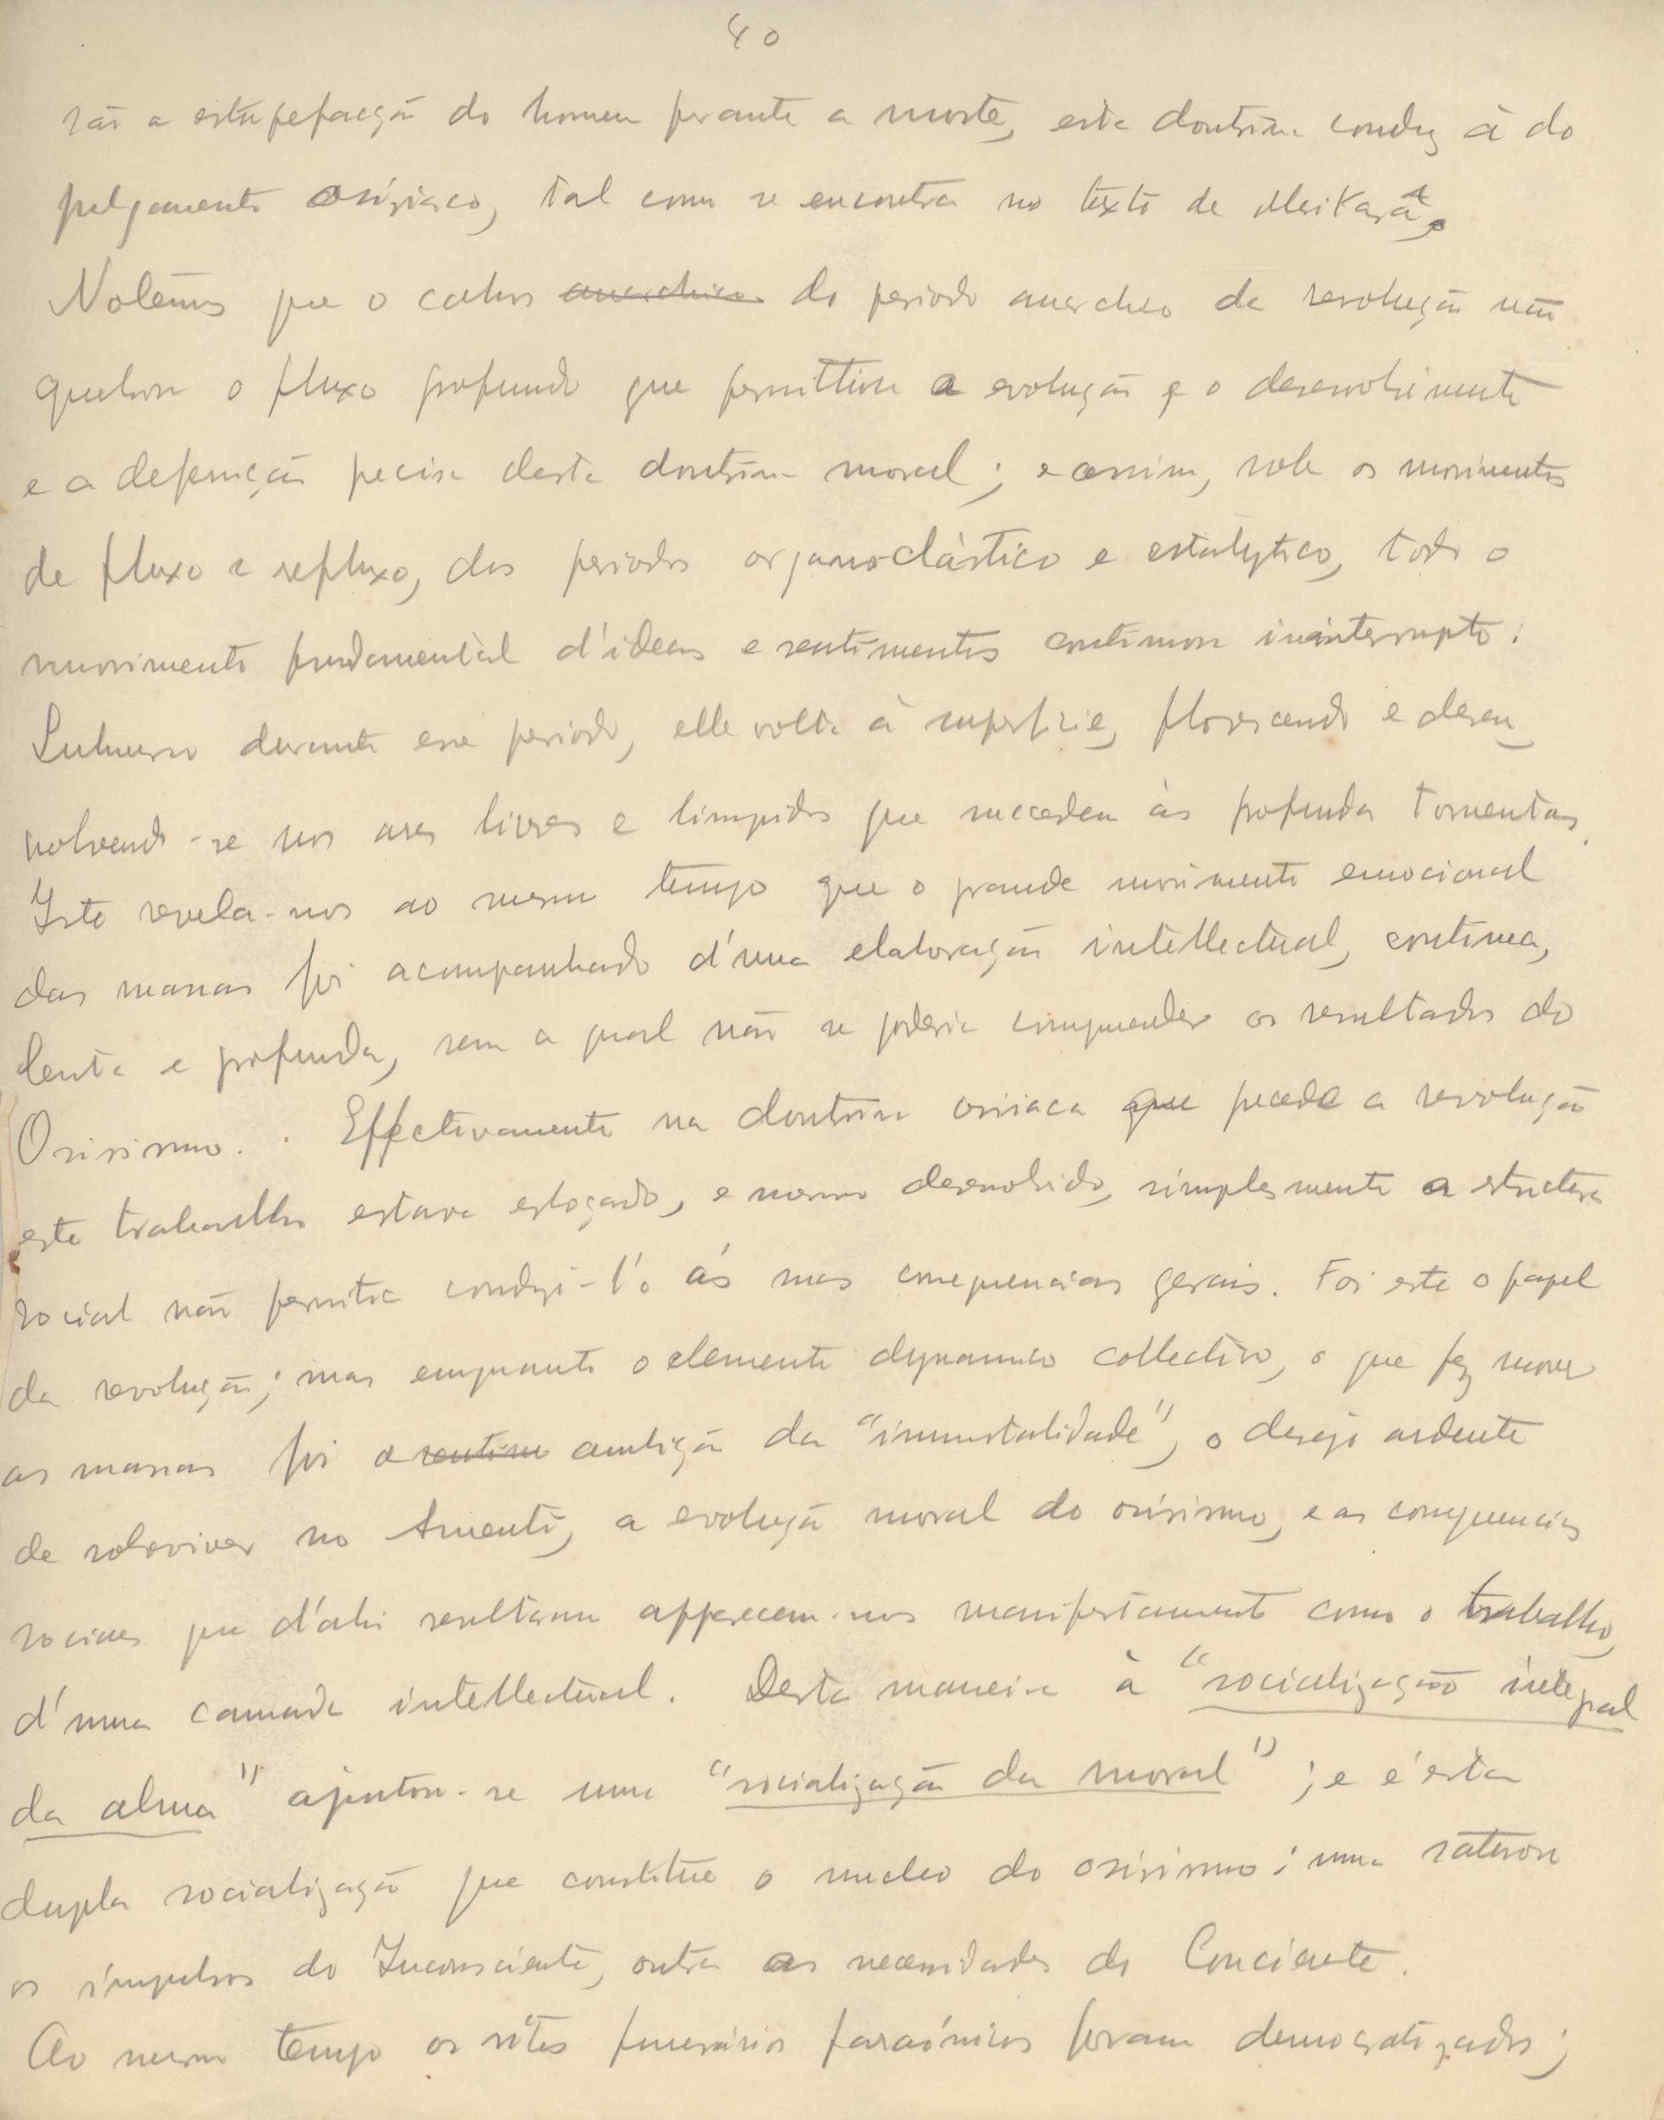 40
são a estupefacção do homem perante a morte, esta doutrina conduz á do
julgamento osiriaco, tal como se encontra no texto de Merikarâ.
Notêmos que o cahos anarchico do periodo anarchico da revolução não
quebrou o fluxo profundo que permittiu a evolução e o desenvolvimento
e a defenição precisa desta doutrina moral; e assim, sob os movimentos
de fluxo e refluxo, dos periodos organoclástico e estalytico, todo o
movimento fundamental d'ideas e sentimentos continuou ininterrupto:
Submerso durante esse periodo, elle volta á superficie, florescendo e desen
volvendo-se nos ares livres e limpidos que succedem ás profundas tormentas.
Isto revela-nos ao mesmo tempo que o grande movimento emocional
das massas foi acompanhado d'uma elaboração intellectual, continua,
lenta e profunda, sem a qual não se poderia comprender os resultados do
Osirismo. Effectivamente na doutrina osiriaca que precede a revolução
este trabalho estava esboçado, e mesmo desenvolvido, simplesmente a estructura
social não permitia conduzi-l'o ás suas consequencias gerais. Foi este o papel
da revolução; mas emquanto o elemento dynamico collectivo, o que fez mover
as massas foi a sentim ambição da "immortalidade", o desejo ardente
de sobreviver no Amenti, a evolução moral do osirismo, e as consequencias
sociaes que d'ahi resultaram apparecem-nos manifestamente como o trabalho,
d'uma camada intellectual. Desta maneira á "socialização integral
da alma" ajuntou-se uma "socialização da moral"; e é esta
dupla socialização que constitue o nucleo do osirismo: uma satisfaz
os impulsos do Inconsciente, outra as necessidades do Conciente.
Ao mesmo tempo os ritos funerários faraónicos foram democratizados;